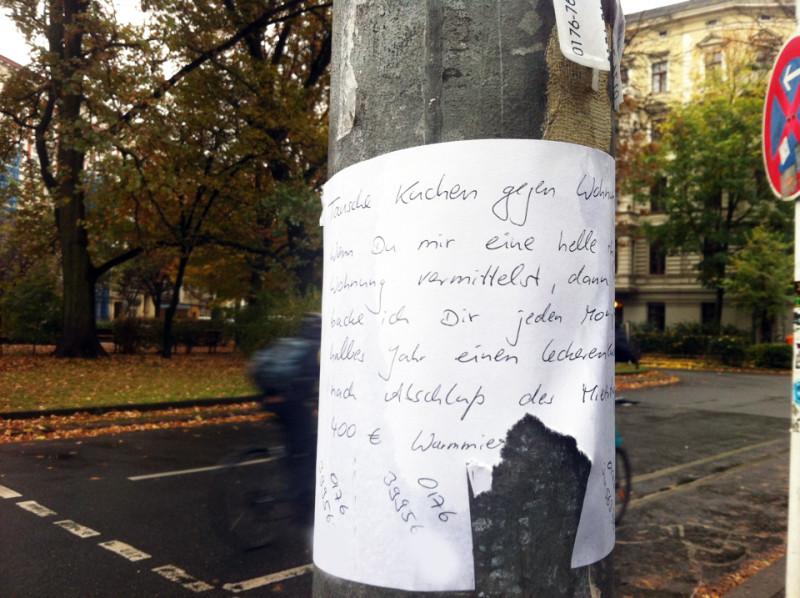 0176-76
Tausche Kuchen gegen Wohn
Wenn Du mir eine helle
Wohnung vermittelst, dann
backe ich Dir jeden Mon
halbes Jahr einen leckeren
nach Abschluß des Miet
400 € Warmmie
0176
39956
0176
39956